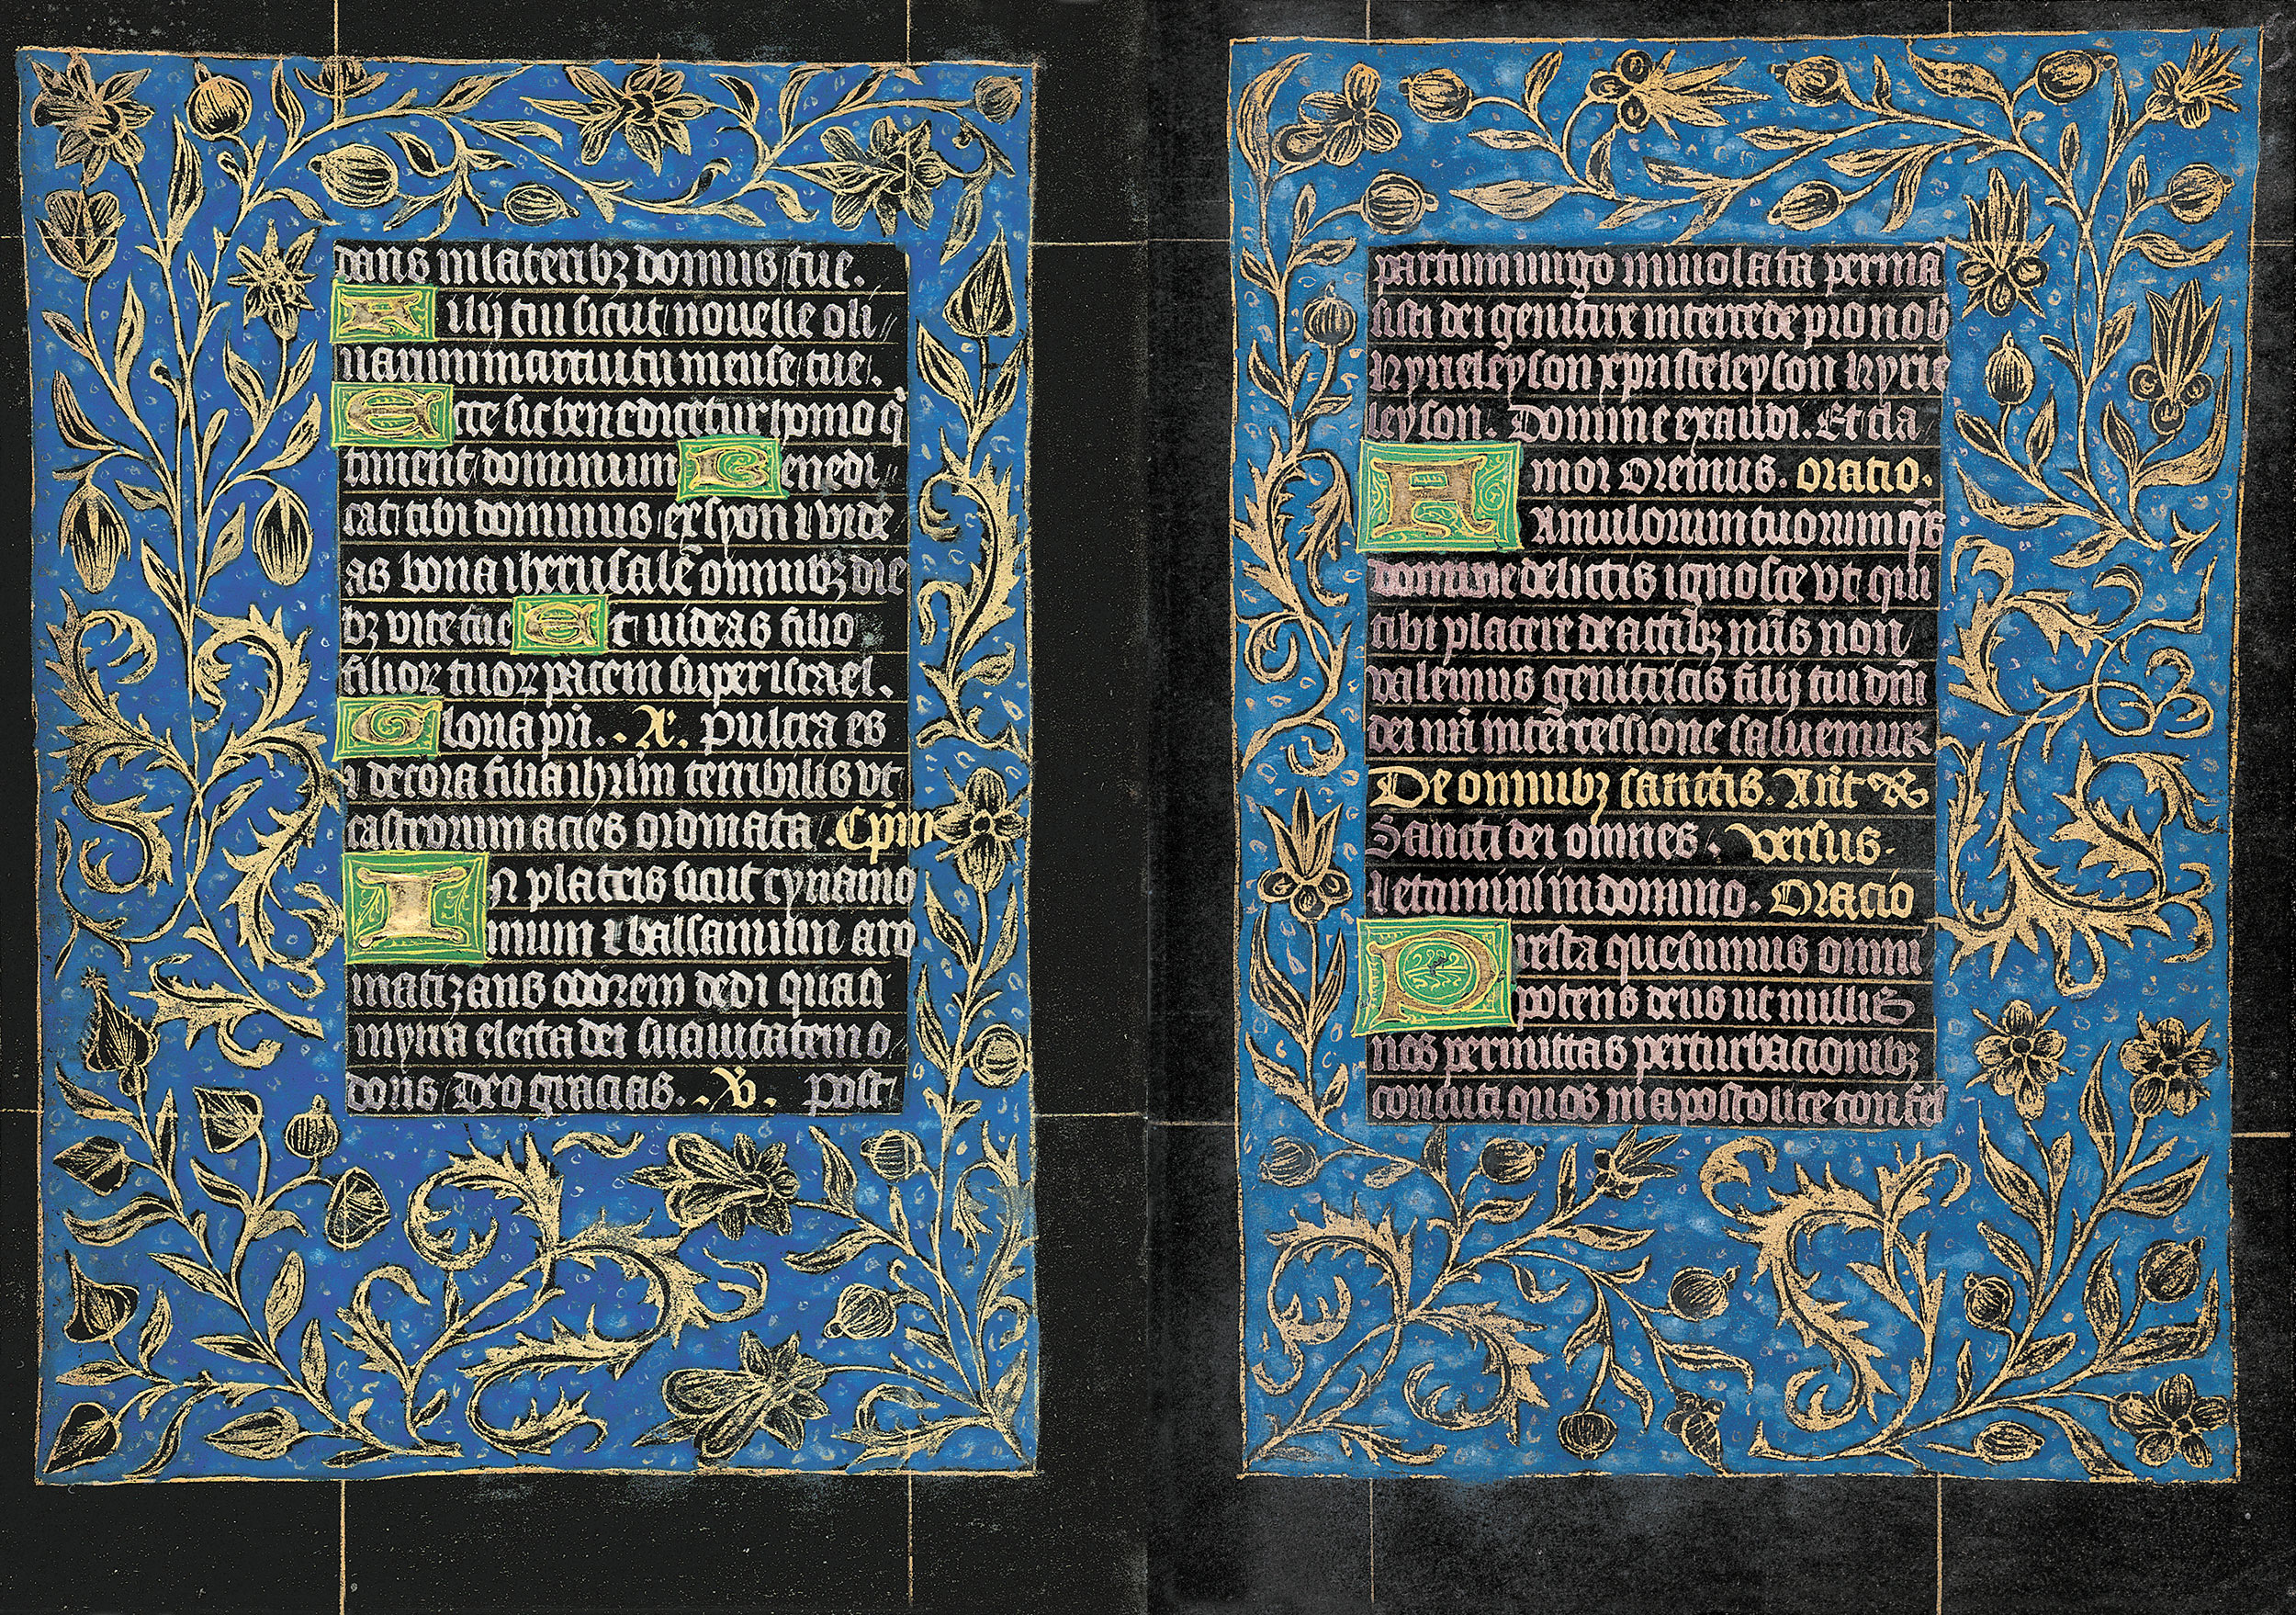 dans in laterib(us) domus tue.
Filij tui sicut nouelle oli//
uarum in circuitu mense tue.
Ecce sic benedicetur homo q̄
timent dominum Benedi
cat tibi dominus ex syon ⁊ vide
as bona iherusalē omnibꝫ die
bꝫ vite tue Et uideas filio
filioꝝ tuoꝝ pacem super israel.
Gloria pr̄i. .A. Pulcra es
⁊ decora filia ihrl̄m terribilis vt
castrorum acies ordinata. Cp̄m
In plateis sicut cynamo
mum ⁊ balsamum aro
matizans odorem dedi quasi
myrra electa dei suauitatem o//
doris Deo gracias. .V. Post
partum uirgo inuiolata permā
sisti dei genitrix intercede pro nob
Kyrieleyson xpristeleyson kyrie
leyson. Domine exaudi. Et cla
mor Oremus. Oratio.
Famulorum tuorum q̄s
domine delictis ignosce vt qui
tibi placere de actibꝫ nr̄is non
valemus genitricis filij tui dn̄i
dei nr̄i intercessione saluemur
De omnibꝫ sanctis. Ant
Sancti dei omnes. versus.
Letamini in domino. Oracio
Presta quesumus omni
potens deus ut nullis
nos permittas perturbacionibꝫ
concuti quos in apostolice confes